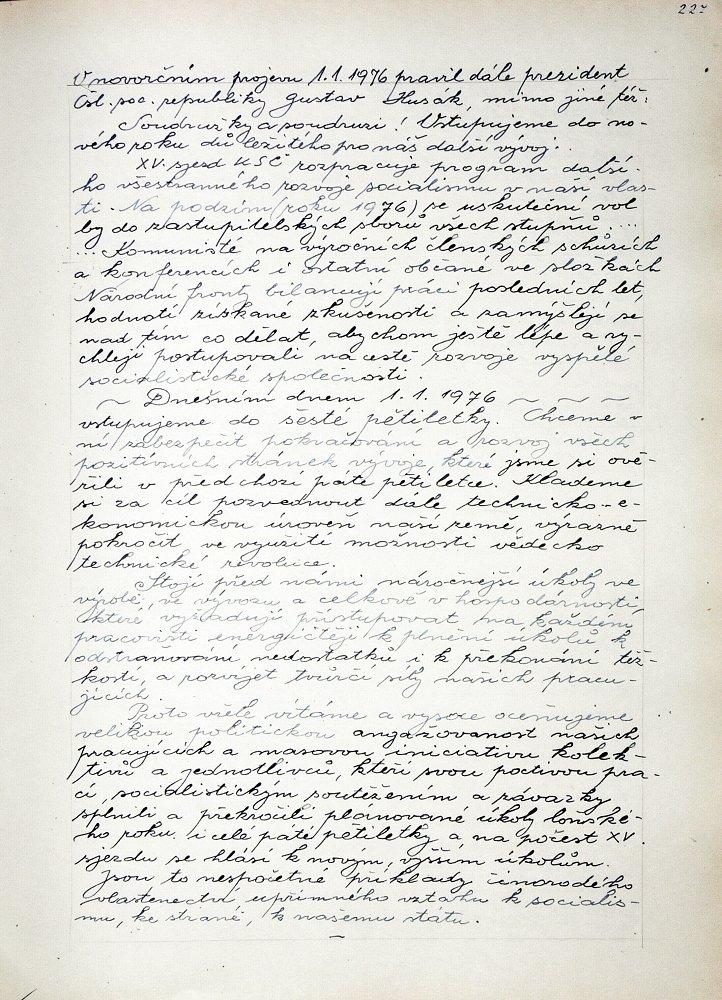 227
V novoročním projevu 1.1.1976 pravil dále prezident
Čsl. soc. republiky Gustav Husák, mimo jiné též:
Soudružky a soudruzi! Vstupujeme do no-
vého roku důležitého pro náš další vývoj..
XV. sjezd KSČ rozpracuje program další-
ho všestranného rozvoje socialismu v naší vlas-
ti. Na podzim (roku 1976) se uskuteční vol
by do zastupitelských sborů všech stupňů....
... Komunisté na výročních členských schůzích
a konferencích i ostatní občané ve složkách
Národní fronty bilancují práci posledních let,
hodnotí získané zkušenosti a zamýšlejí se
nad tím co dělat, abychom ještě lépe a ry-
chleji postupovali na cestě rozvoje vyspělé
socialistické společnosti.
~ Dnešním dnem 1.1.1976 ~ ~ ~ ~
vstupujeme do šesté pětiletky. Chceme v
ní zabezpečit pokračování a rozvoj všech
pozitivních stránek vývoje, které jsme si ově-
řili v předchozí páté pětiletce. Klademe
si za cíl pozvednout dále technicko-e-
konomickou úroveň naší země, výrazně
pokročit ve využití možností vědecko
technické revoluce.
Stojí před námi náročnější úkoly ve
výrobě, ve vývozu a celkově v hospodárnosti,
které vyžadují přistupovat na každém
pracovišti energičtěji k plnění úkolů k
odstraňování nedostatků i k překonání těž-
kostí, a rozvíjet tvůrčí síly našich pracu-
jících.
Proto vřele vítáme a vysoce oceňujeme
velikou politickou angažovanost našich
pracujících a masovou iniciativu kolek-
tivů a jednotlivců, kteří svou poctivou pra-
cí, socialistickým soutěžením a závazky
splnili a překročili plánované úkoly loňské-
ho roku i celé páté pětiletky a na počest XV.
sjezdu se hlásí k novým, vyšším úkolům.
Jsou to nespočetné příklady činorodého
vlastenectví upřímného vztahu k socialis-
mu, ke straně, k našemu státu.